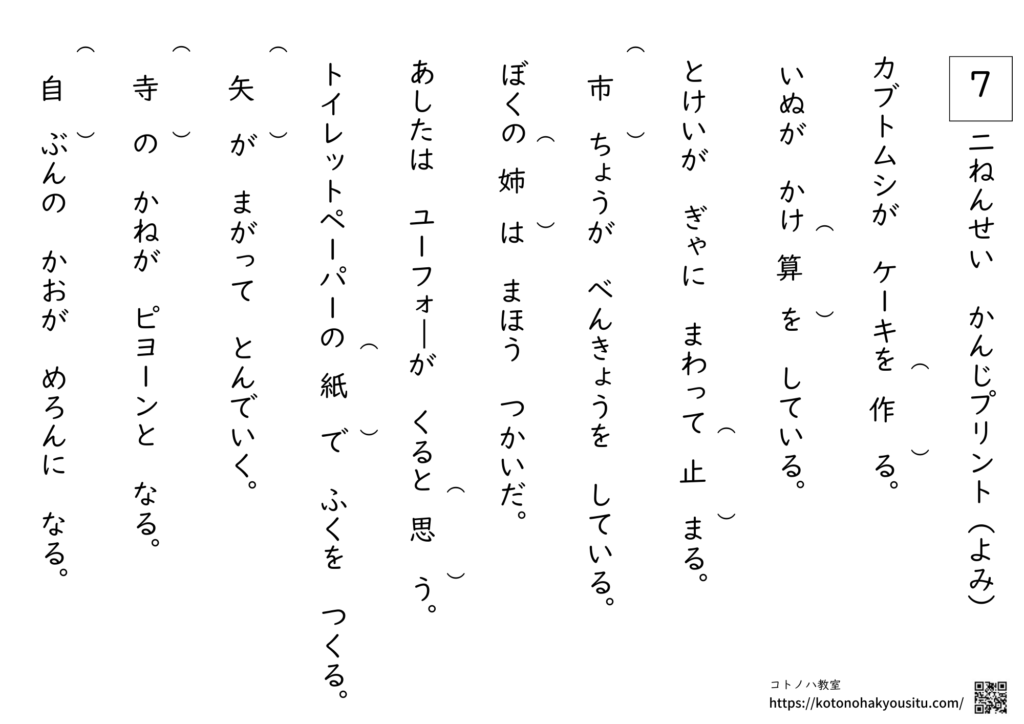 7 二ねんせい かんじプリント（よみ）
カブトムシが ケーキを 作（ ）る。
いぬが かけ算（ ）を している。
とけいが ぎゃに まわって 止（ ）まる。
市（ ）ちょうが べんきょうを している。
ぼくの 姉（ ）は まほう つかいだ。
あしたは ユーフォーが くると 思（ ）う。
トイレットペーパーの 紙（ ）で ふくを つくる。
矢（ ）が まがって とんでいく。
寺（ ）の かねが ピヨーンと なる。
自（ ）ぶんの かおが めろんに なる。
コトノハ教室
https://kotonohakyousitu.com/